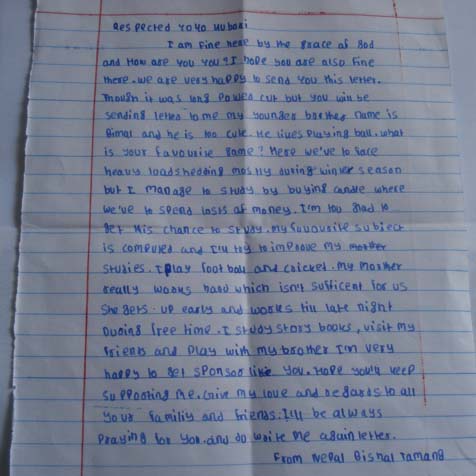 Respected Yoko Mubori
I am fine here by the grace of god
and How are you you? I hope you are also fine
there. we are very happy to send you this letter.
Though it was long power cut but you will be
sending letter to me my younger borther name is
Bimal and he is too cute. He lives playing ball. what
is your favourite game? Here we've to face
heavy loadshedding mostly during winter season
but I manage to study by buying candle where
we've to spend losts of money. I'm too glad to
get this chance to study. my favourite subject
is computer and I'll try to improve my mother
studies. I play football and cricket. my mother
really works hard which isn't sufficent for us
she gets up early and works till late night
During free time. I study story books, visit my
friends and play with my brother I'm very
happy to get sponsor like you. Hope you'll keep
supporting me. Give my love and regards to all
your familiy and friends. I'll be always
praying for you. and do write me again letter.
From Nepal Bishal Tamang